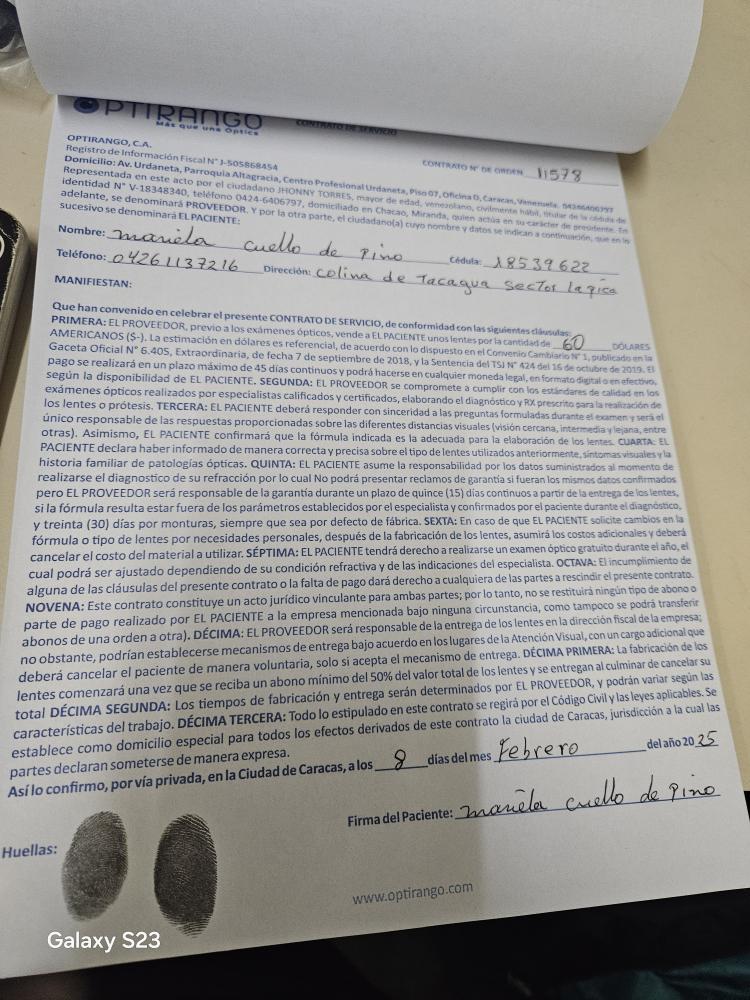 OPTIRANGO
Más que una Óptica
CONTRATO DE SERVICIO
OPTIRANGO, C.A.
CONTRATO N° DE ORDEN 11578
Registro de Información Fiscal N° J-505868454
Domicilio: Av. Urdaneta, Parroquia Altagracia, Centro Profesional Urdaneta, Piso 07, Oficina D, Caracas, Venezuela. 04246406797
Representada en este acto por el ciudadano JHONNY TORRES, mayor de edad, venezolano, civilmente hábil, titular de la cédula de
identidad N° V-18348340, teléfono 0424-6406797, domiciliado en Chacao, Miranda, quien actúa en su carácter de presidente. En
adelante, se denominará PROVEEDOR. Y por la otra parte, el ciudadano(a) cuyo nombre y datos se indican a continuación, que en lo
sucesivo se denominará EL PACIENTE:
Nombre: mariela cuello de pino Cédula: 18539622
Teléfono: 04261137216 Dirección: colina de Tacagua sector la pica
MANIFIESTAN:
Que han convenido en celebrar el presente CONTRATO DE SERVICIO, de conformidad con las siguientes cláusulas:
PRIMERA: EL PROVEEDOR, previo a los exámenes ópticos, vende a EL PACIENTE unos lentes por la cantidad de 60 DÓLARES
AMERICANOS ($-). La estimación en dólares es referencial, de acuerdo con lo dispuesto en el Convenio Cambiario N° 1, publicado en la
Gaceta Oficial N° 6.405, Extraordinaria, de fecha 7 de septiembre de 2018, y la Sentencia del TSJ N° 424 del 16 de octubre de 2019. El
pago se realizará en un plazo máximo de 45 días continuos y podrá hacerse en cualquier moneda legal, en formato digital o en efectivo,
según la disponibilidad de EL PACIENTE. SEGUNDA: EL PROVEEDOR se compromete a cumplir con los estándares de calidad en los
exámenes ópticos realizados por especialistas calificados y certificados, elaborando el diagnóstico y RX prescrito para la realización de
los lentes o prótesis. TERCERA: EL PACIENTE deberá responder con sinceridad a las preguntas formuladas durante el examen y será el
único responsable de las respuestas proporcionadas sobre las diferentes distancias visuales (visión cercana, intermedia y lejana, entre
otras). Asimismo, EL PACIENTE confirmará que la fórmula indicada es la adecuada para la elaboración de los lentes. CUARTA: EL
PACIENTE declara haber informado de manera correcta y precisa sobre el tipo de lentes utilizados anteriormente, síntomas visuales y la
historia familiar de patologías ópticas. QUINTA: EL PACIENTE asume la responsabilidad por los datos suministrados al momento de
realizarse el diagnostico de su refracción por lo cual No podrá presentar reclamos de garantía si fueran los mismos datos confirmados
pero EL PROVEEDOR será responsable de la garantía durante un plazo de quince (15) días continuos a partir de la entrega de los lentes,
si la fórmula resulta estar fuera de los parámetros establecidos por el especialista y confirmados por el paciente durante el diagnóstico,
y treinta (30) días por monturas, siempre que sea por defecto de fábrica. SEXTA: En caso de que EL PACIENTE solicite cambios en la
fórmula o tipo de lentes por necesidades personales, después de la fabricación de los lentes, asumirá los costos adicionales y deberá
cancelar el costo del material a utilizar. SÉPTIMA: EL PACIENTE tendrá derecho a realizarse un examen óptico gratuito durante el año, el
cual podrá ser ajustado dependiendo de su condición refractiva y de las indicaciones del especialista. OCTAVA: El incumplimiento de
alguna de las cláusulas del presente contrato o la falta de pago dará derecho a cualquiera de las partes a rescindir el presente contrato.
NOVENA: Este contrato constituye un acto jurídico vinculante para ambas partes; por lo tanto, no se restituirá ningún tipo de abono o
parte de pago realizado por EL PACIENTE a la empresa mencionada bajo ninguna circunstancia, como tampoco se podrá transferir
abonos de una orden a otra). DÉCIMA: EL PROVEEDOR será responsable de la entrega de los lentes en la dirección fiscal de la empresa;
no obstante, podrían establecerse mecanismos de entrega bajo acuerdo en los lugares de la Atención Visual, con un cargo adicional que
deberá cancelar el paciente de manera voluntaria, solo si acepta el mecanismo de entrega. DÉCIMA PRIMERA: La fabricación de los
lentes comenzará una vez que se reciba un abono mínimo del 50% del valor total de los lentes y se entregan al culminar de cancelar su
total DÉCIMA SEGUNDA: Los tiempos de fabricación y entrega serán determinados por EL PROVEEDOR, y podrán variar según las
características del trabajo. DÉCIMA TERCERA: Todo lo estipulado en este contrato se regirá por el Código Civil y las leyes aplicables. Se
establece como domicilio especial para todos los efectos derivados de este contrato la ciudad de Caracas, jurisdicción a la cual las
partes declaran someterse de manera expresa.
Así lo confirmo, por vía privada, en la Ciudad de Caracas, a los 8 días del mes Febrero del año 2025
Firma del Paciente: mariela cuello de pino
Huellas:
www.optirango.com
Galaxy S23